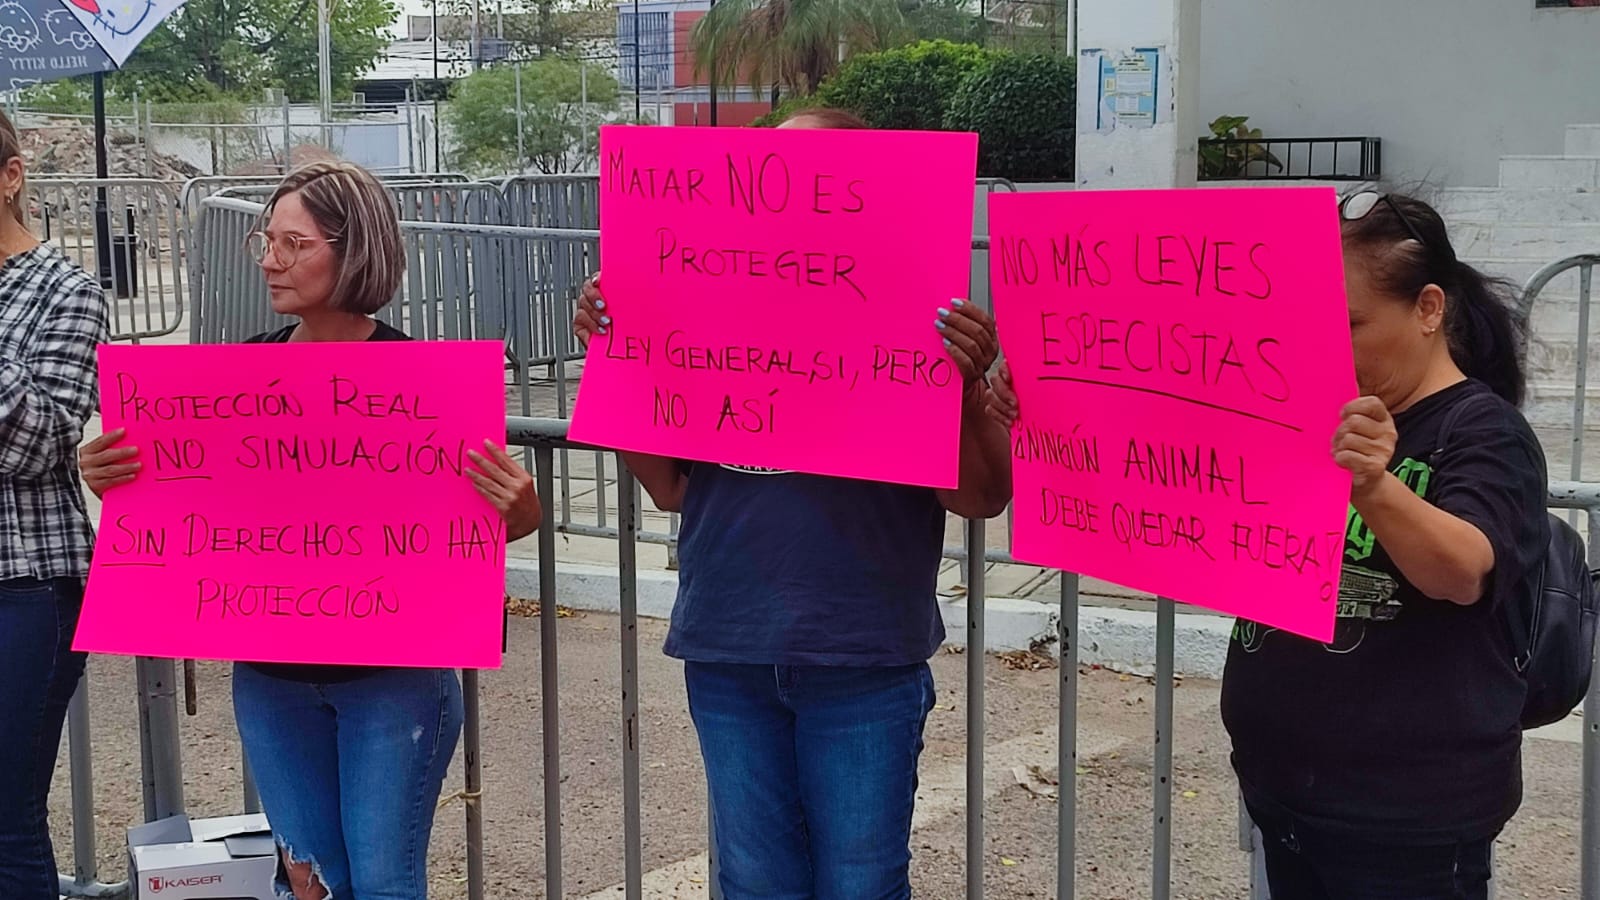 HELLO KITTY
PROTECCIÓN REAL
NO SIMULACIÓN
SIN DERECHOS NO HAY
PROTECCIÓN
MATAR NO ES
PROTEGER
LEY GENERAL, SI, PERO
NO ASÍ
NO MÁS LEYES
ESPECISTAS
¡NINGÚN ANIMAL
DEBE QUEDAR FUERA!
KAISER